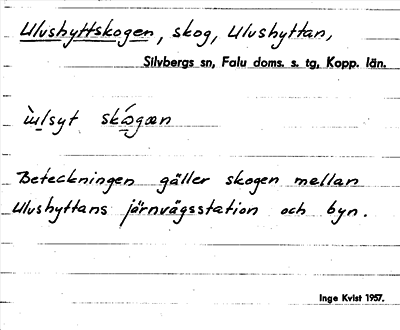 Ulvshyttskogen, skog, Ulvshyttan,
Silvbergs sn, Falu doms. s. tg, Kopp. län.
Beteckningen gäller skogen mellan
Ulvshyttans järnvägsstation och byn.
Inge Kvist 1957.